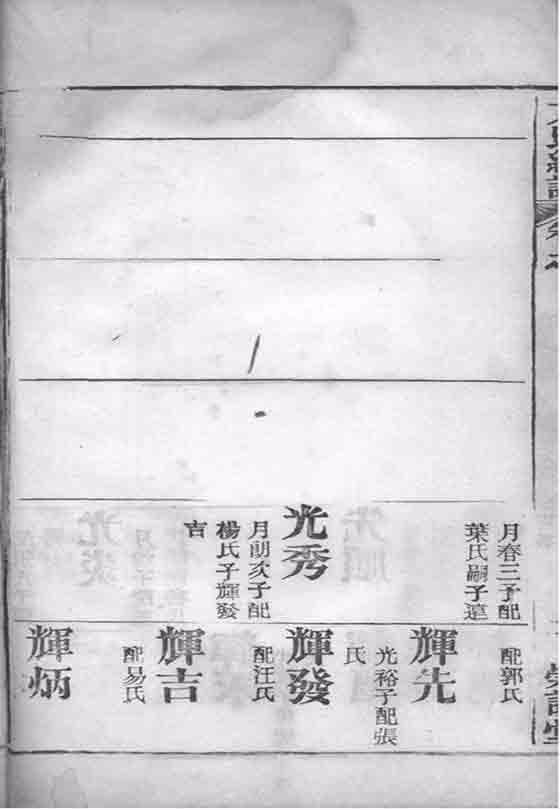 月春三子配
葉氏嗣子達
光秀
月朗次子配
楊氏子輝發
吉
配郭氏
輝先
光裕子配張
氏
輝發
配汪氏
輝吉
配易氏
輝炳